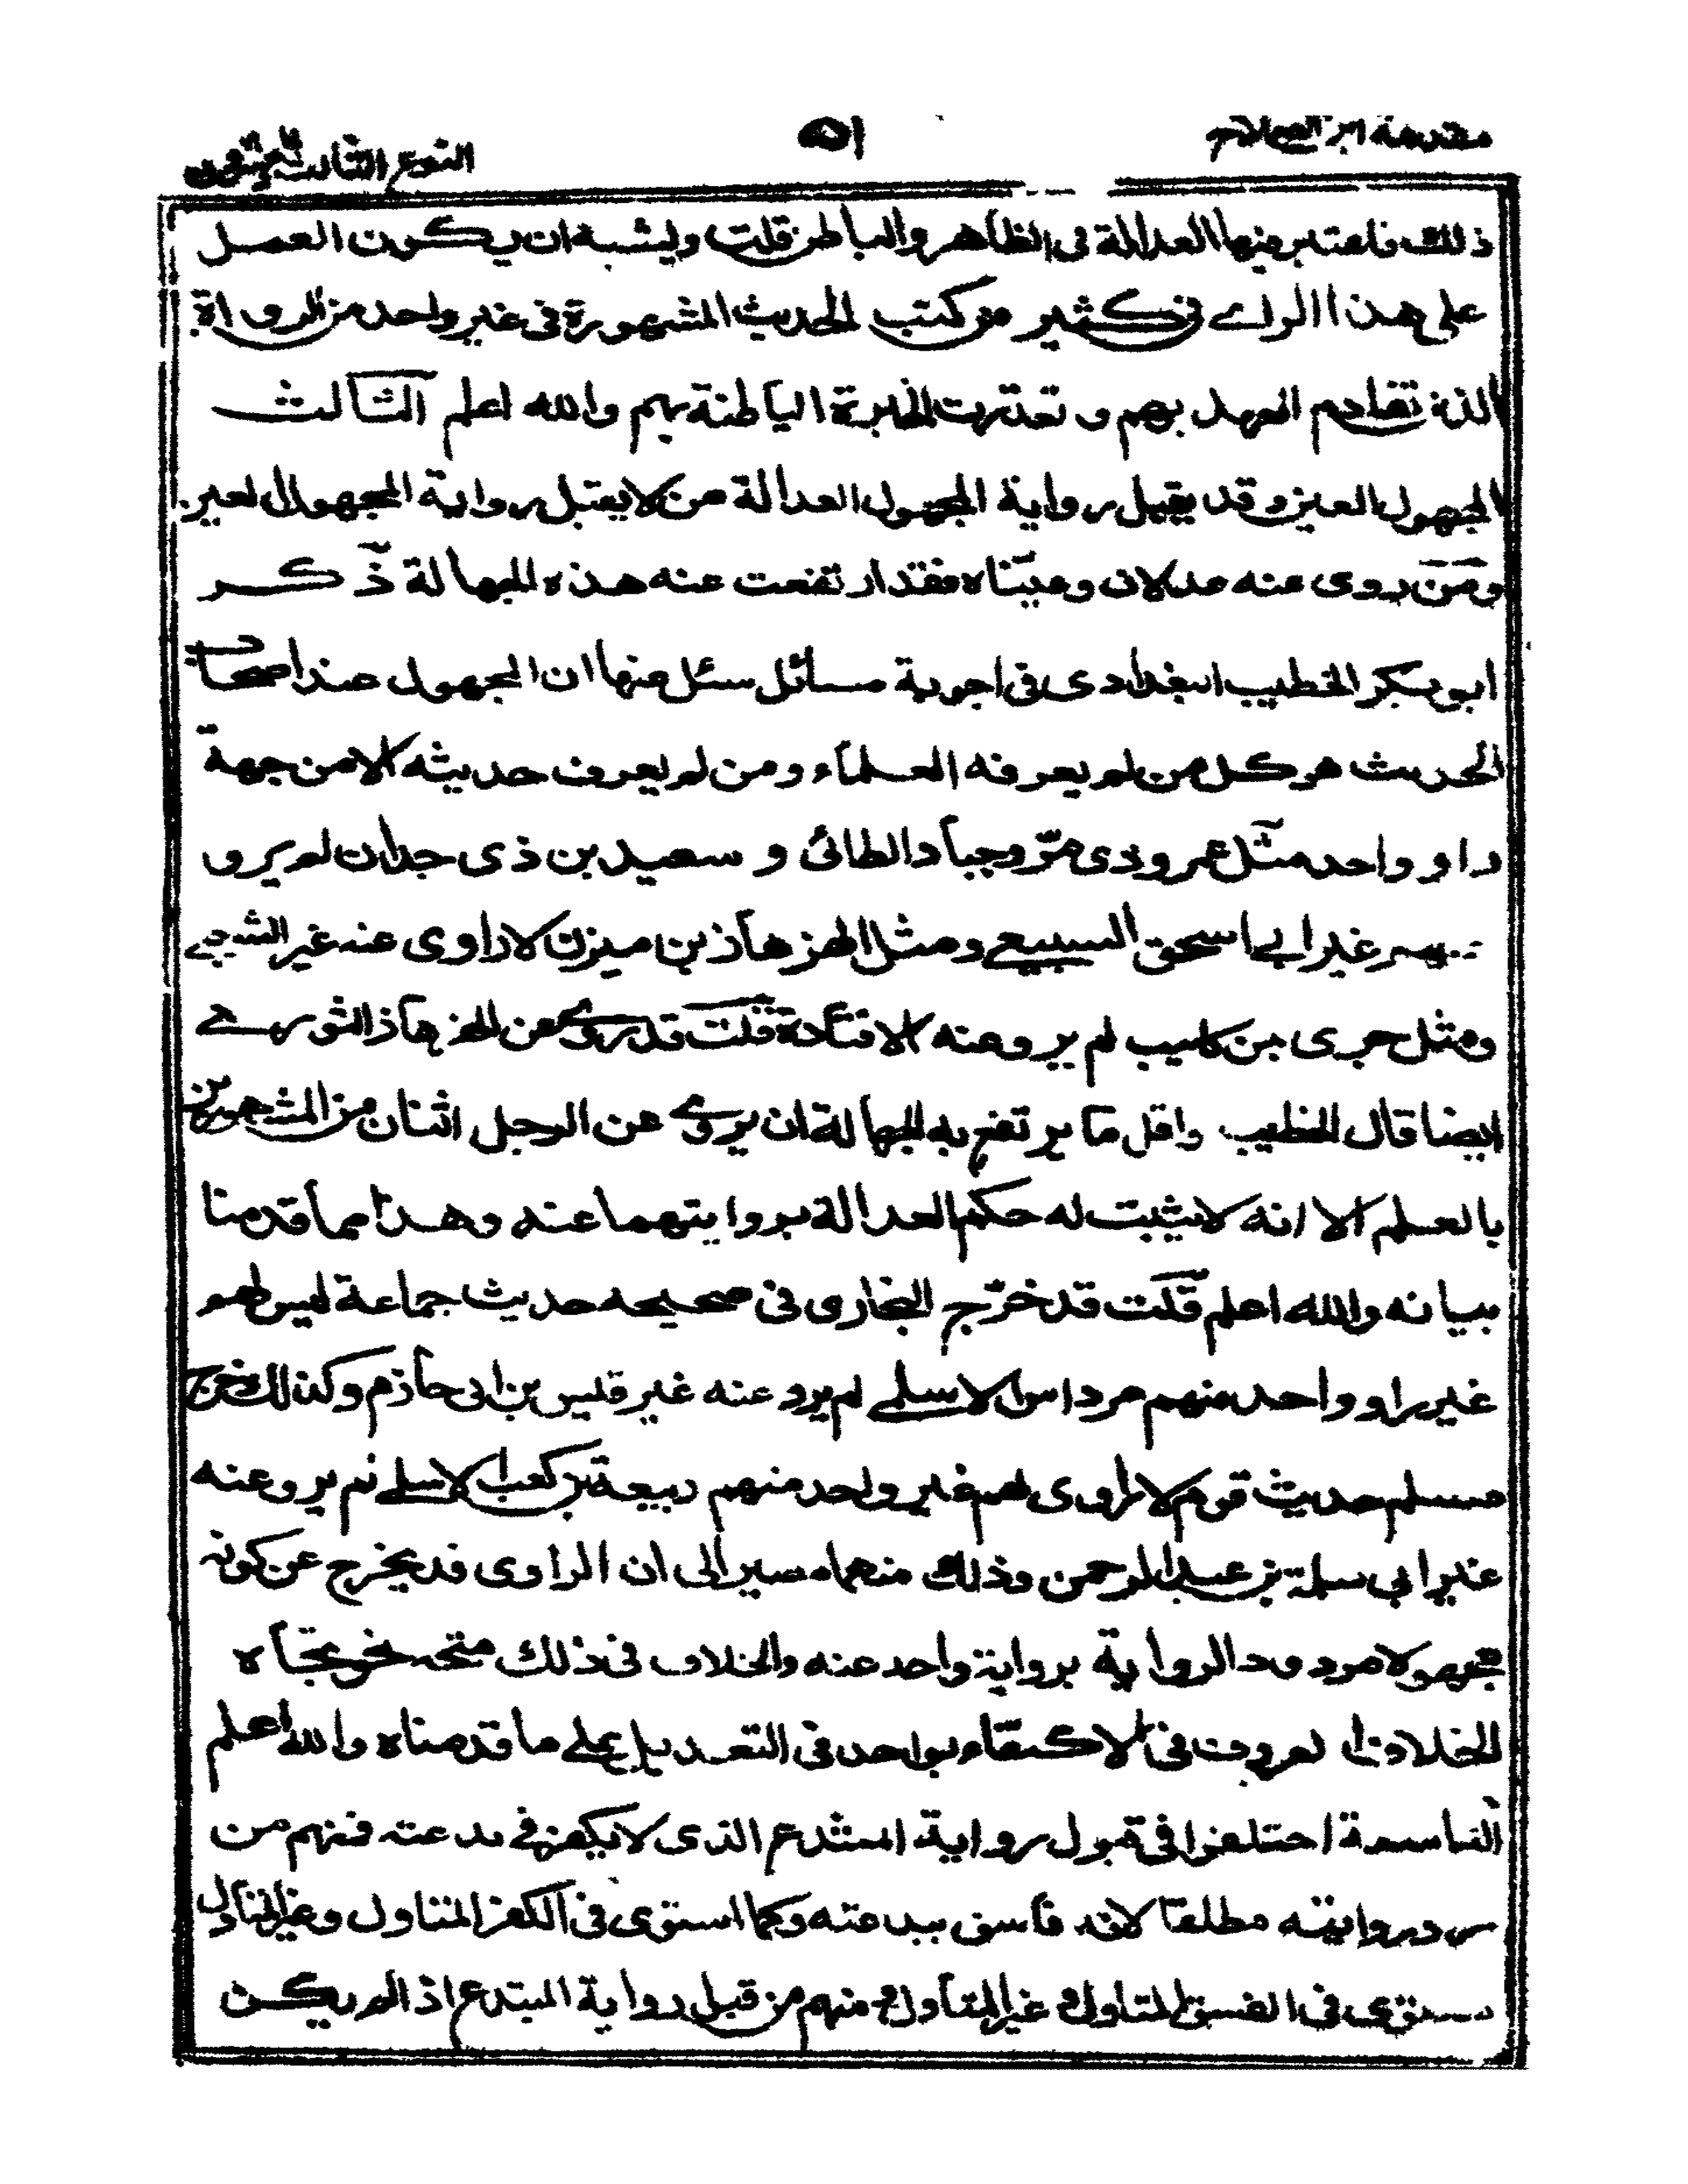 مقدمة ابن الصلاح
٥١
النوع الثالث والعشرون
ذلك فاعتبر فيها العدالة في الظاهر والباطن قلت ويشبه ان يكون العمل
على هذا الراے في كثير من كتب الحديث المشهورة في غير واحد من الرواة
الذين تقادم العهد بهم و تعذرت الخبرة الباطنة بهم والله اعلم الثالث
المجهول العين وقد يقبل رواية المجهول العدالة من لا يقبل رواية المجهول العين
ومن روى عنه عدلان وعيناه فقد ارتفعت عنه هذه الجهالة ذكر
ابو بكر الخطيب البغدادى في اجوبة مسائل سئل عنها ان المجهول عند اصحاب
الحديث هو كل من لم يعرفه العلماء ومن لم يعرف حديثه الا من جهة
راو واحد مثل عمرو ذى مرّ وجبار الطائى و سعيد بن ذى حدان لم يرو
عنهم غير ابي اسحق السبيعي ومثل الهزهاز بن ميزن لا راوى عنه غير الشعبي
ومثل جرى بن كليب لم يرو عنه الا قتادة قلت قد روى عن الهزهاز الثورے
ايضا قال الخطيب واقل ما يرتفع به الجهالة ان يروى عن الرجل اثنان من المشهورين
بالعلم الا انه لا يثبت له حكم العدالة بروايتهما عنه وهذا مما قدمنا
بيانه والله اعلم قلت قد خرّج البخارى في صحيحه حديث جماعة ليس لهم
غير راو واحد منهم مرداس الاسلمي لم يرو عنه غير قيس بن ابى حازم وكذلك خرج
مسلم حديث قوم لا راوى لهم غير واحد منهم ربيعة بن كعب الاسلمي لم يرو عنه
غير ابي سلمة بن عبد الرحمن وذلك منهما مصير الى ان الراوى قد يخرج عن كونه
مجهولا مردود الرواية برواية واحد عنه والخلاف في ذلك متجه نحو اتجاه
الخلاف المعروف في الاكتفاء بواحد في التعديل على ما قدمناه والله اعلم
التاسعة اختلفوا في قبول رواية المبتدع الذى لا يكفر في بدعته فمنهم من
رد روايته مطلقا لانه فاسق ببدعته وكما استوى في الكفر المتاول وغير المتاول
يستوى في الفسق المتاول و غير المتاول ومنهم من قبل رواية المبتدع اذا لم يكن